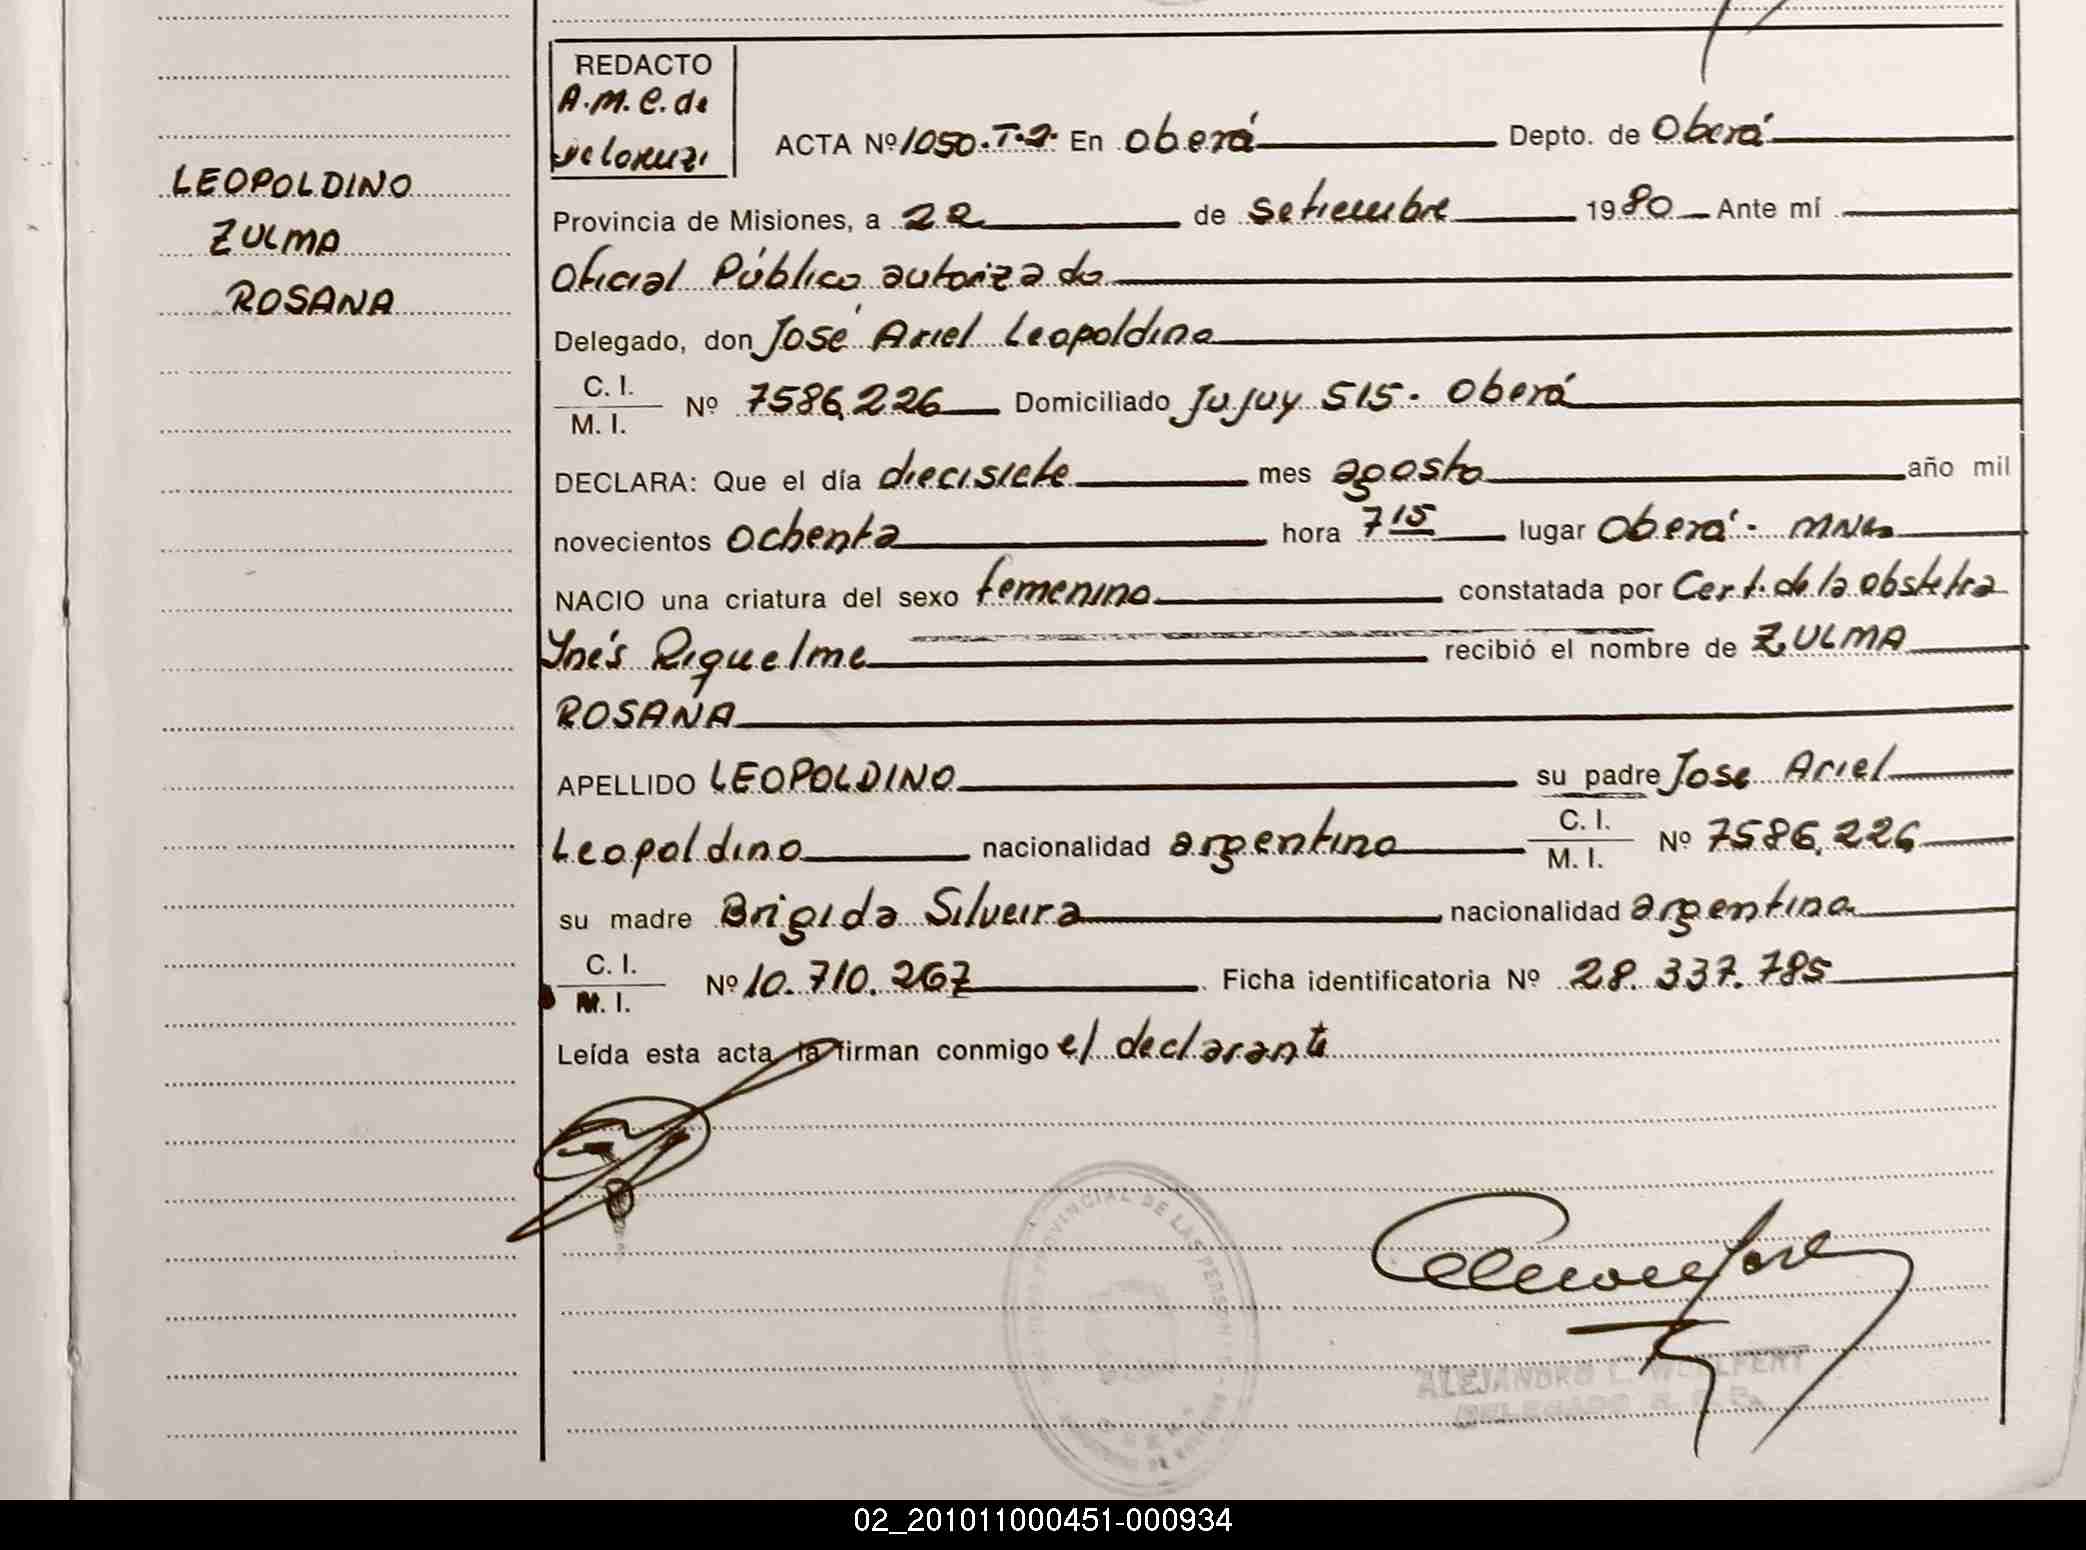 REDACTO
A.M.C. de
De Lorenzi
LEOPOLDINO
ZULMA
ROSANA
ACTA Nº 1050.T.2. En Oberá Depto. de Oberá
Provincia de Misiones, a 22 de Setiembre 1980 Ante mí
Oficial Público autorizado
Delegado, don José Ariel Leopoldino
C. I. / M. I. Nº 7586,226 Domiciliado Jujuy 515. Oberá
DECLARA: Que el día diecisiete mes agosto año mil
novecientos ochenta hora 7 15 lugar Oberá. Mnes
NACIO una criatura del sexo femenino constatada por Cert. de la obstetra
Ynés Riquelme recibió el nombre de ZULMA
ROSANA
APELLIDO LEOPOLDINO su padre Jose Ariel
Leopoldino nacionalidad argentino C. I. / M. I. Nº 7586,226
su madre Brigida Silveira nacionalidad argentina
C. I. / M. I. Nº 10.710.267 Ficha identificatoria Nº 28.337.785
Leída esta acta la firman conmigo el declarante
PROVINCIAL DE LAS PERSON
ALEJANDRO L.
DELEGADO
02_201011000451-000934